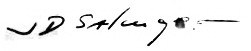 J D Salinger